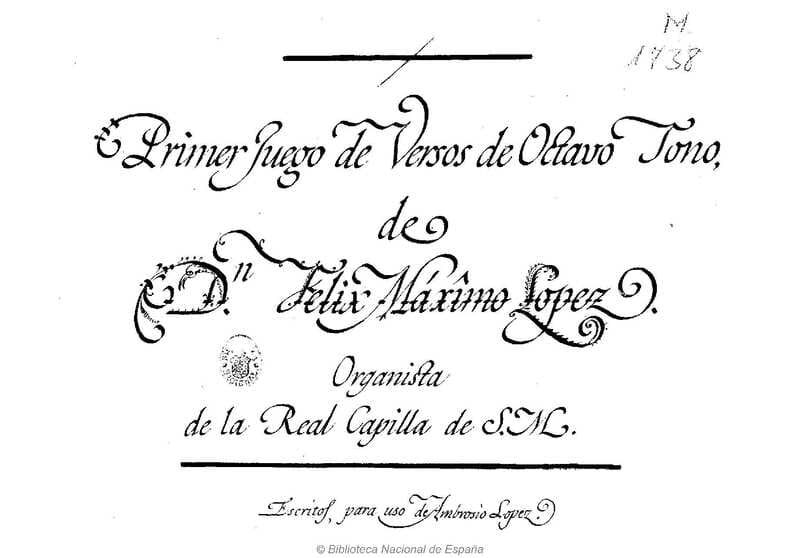 M.
1738
Primer Juego de Versos de Octavo Tono,
de
D.n Felix Máximo Lopez.
Organista
de la Real Capilla de S.M.
Escritos, para uso de Ambrosio Lopez
© Biblioteca Nacional de España